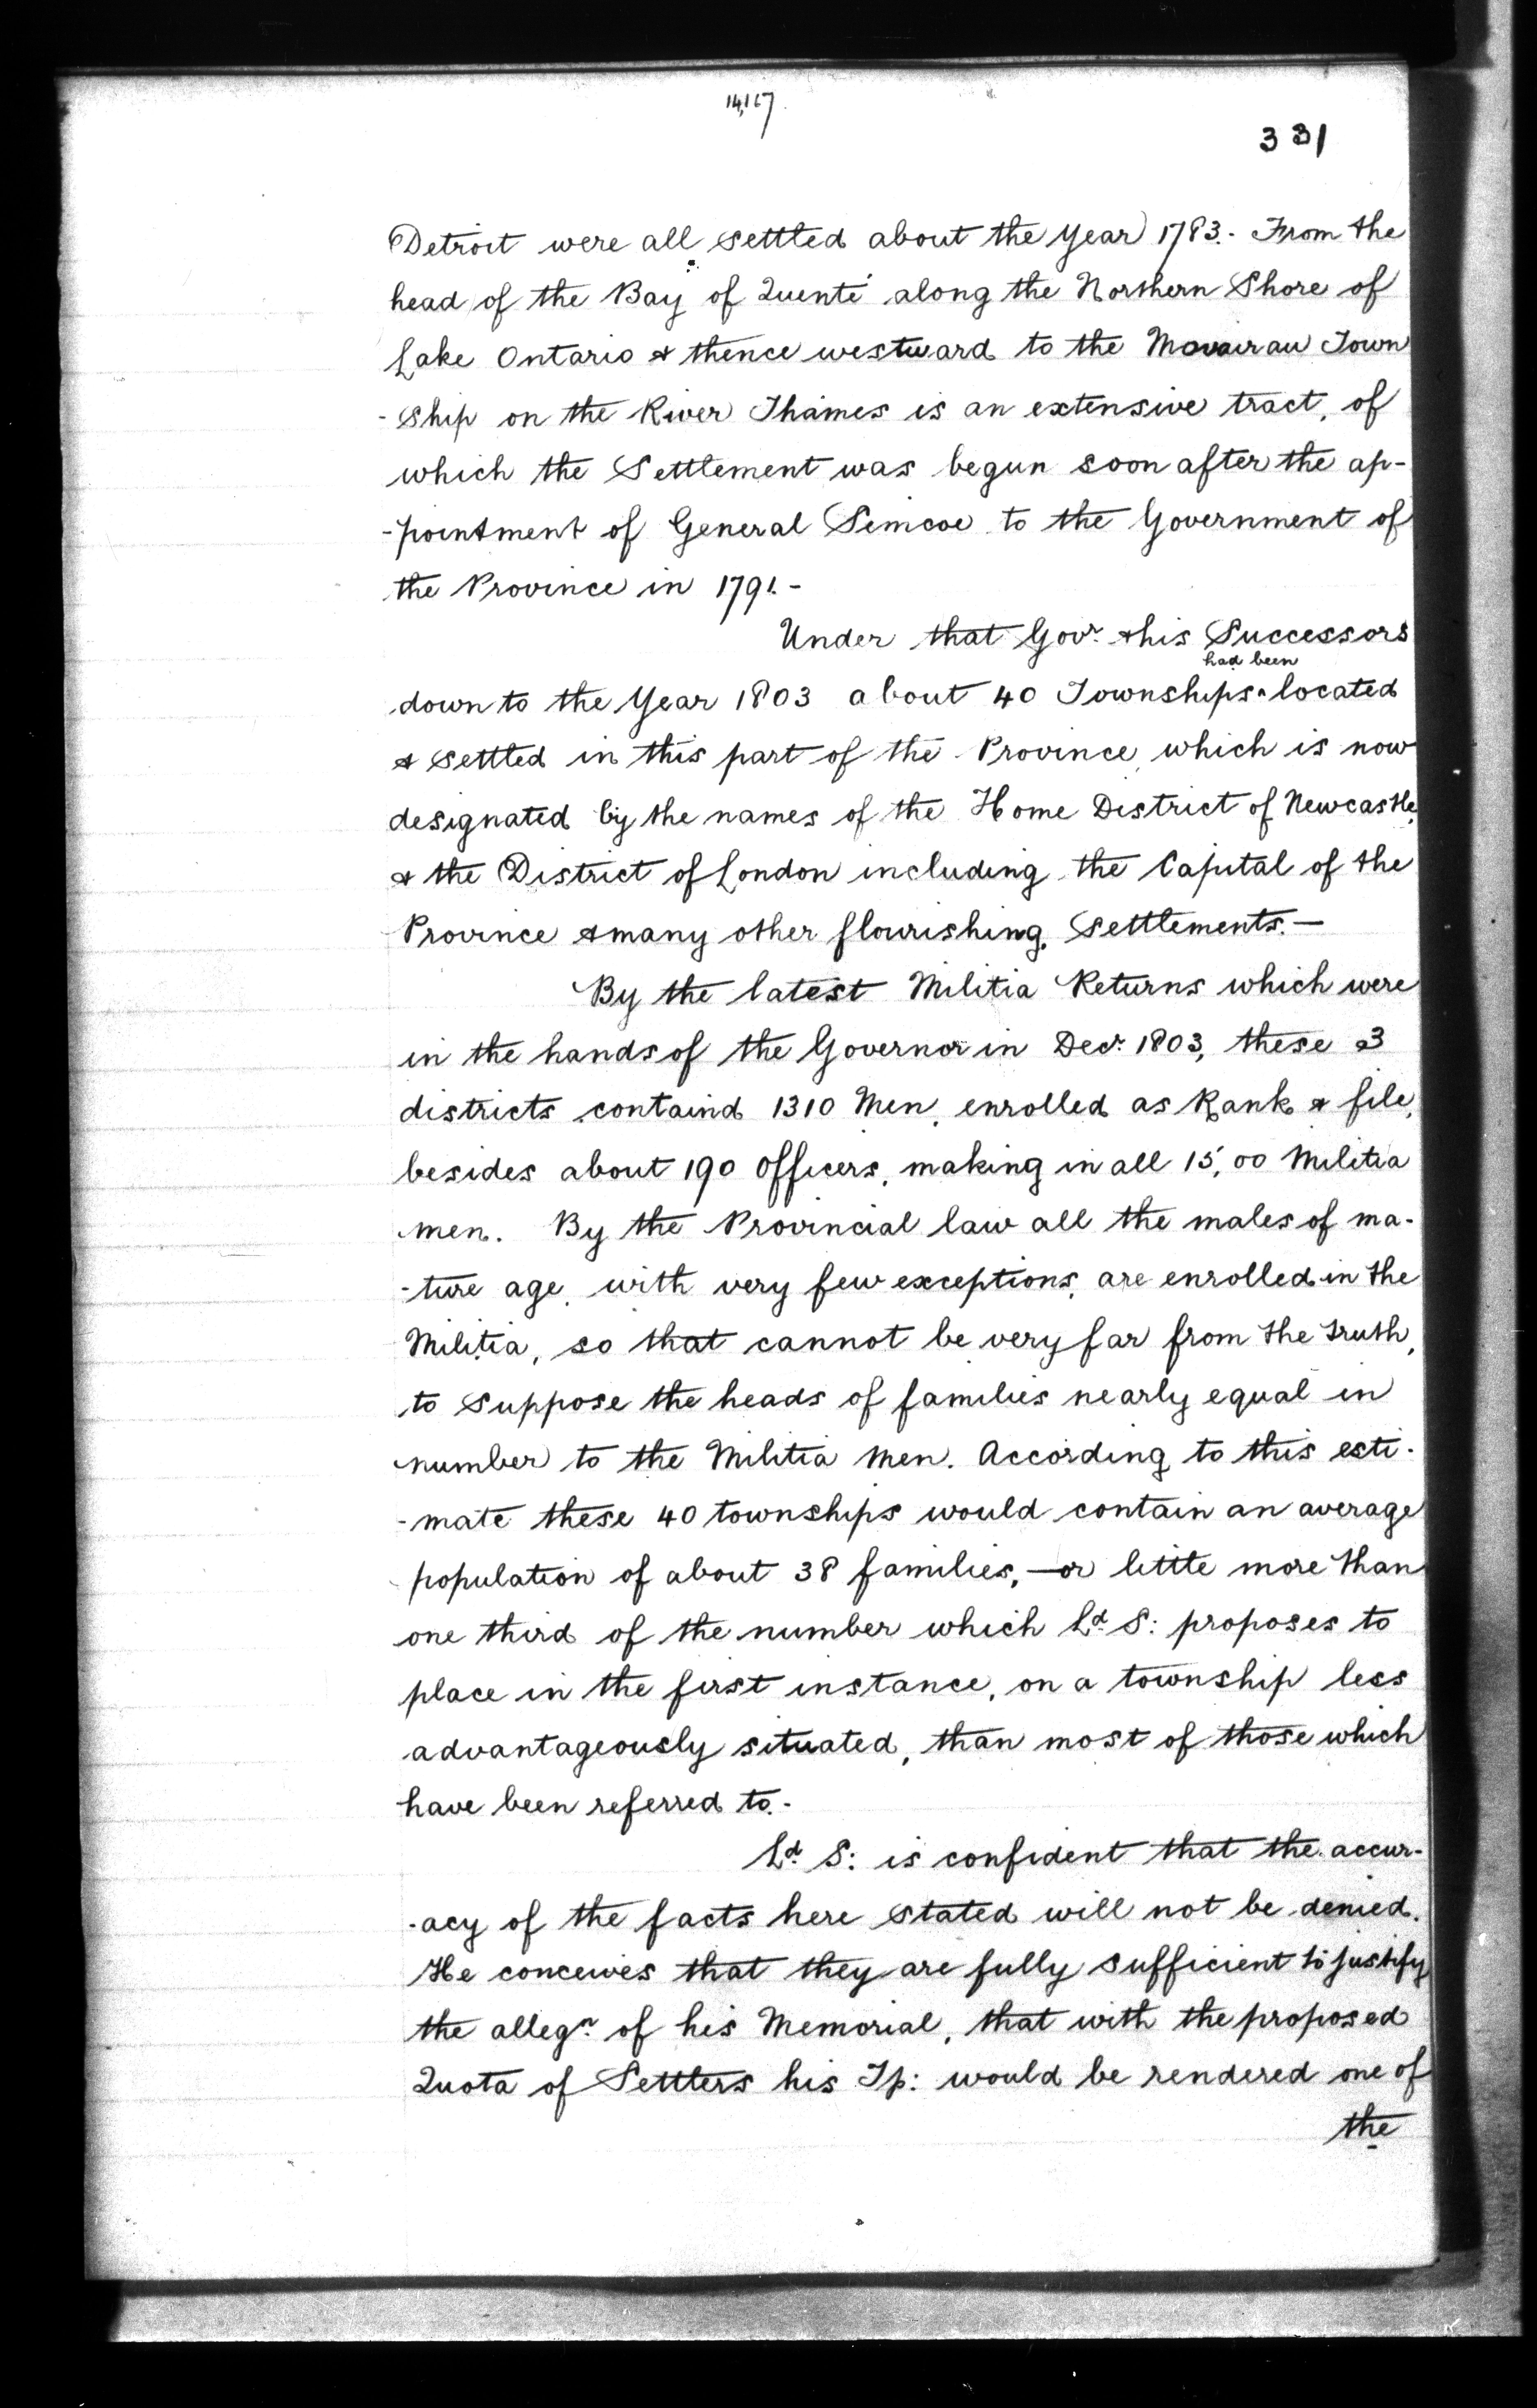 14,167
331
Detroit were all settled about the Year 1783.- From the
head of the Bay of Quenté along the Northern Shore of
Lake Ontario & thence westward to the Town
-ship on the River Thames is an extensive tract, of
which the Settlement was begun soon after the ap-
-pointment of General Simcoe to the Government of
the Province in 1791.-
Under that Govr. & his Successors
had been
down to the Year 1803 about 40 Townships ^ located
& settled in this part of the Province, which is now
designated by the names of the Home District of Newcastle,
& the District of London including the Capital of the
Province & many other flourishing Settlements.—
By the latest Militia Returns which were
in the hands of the Governor in Decr. 1803, these 3
districts containd 1310 Men, enrolled as Rank & file,
besides about 190 Officers, making in all 15,00 Militia
men. By the Provincial law all the males of ma-
-ture age, with very few exceptions, are enrolled in the
Militia, so that cannot be very far from the truth,
to suppose the heads of families nearly equal in
number to the Militia Men. According to this esti-
-mate these 40 townships would contain an average
population of about 38 families,—or little more than
one third of the number which Ld. S: proposes to
place in the first instance, on a township less
advantageously situated, than most of those which
have been referred to.-
Ld. S: is confident that the accur-
-acy of the facts here stated will not be denied.
He conceives that they are fully sufficient to justify
the allegn. of his Memorial, that with the proposed
Quota of Settlers his Tp: would be rendered one of
the